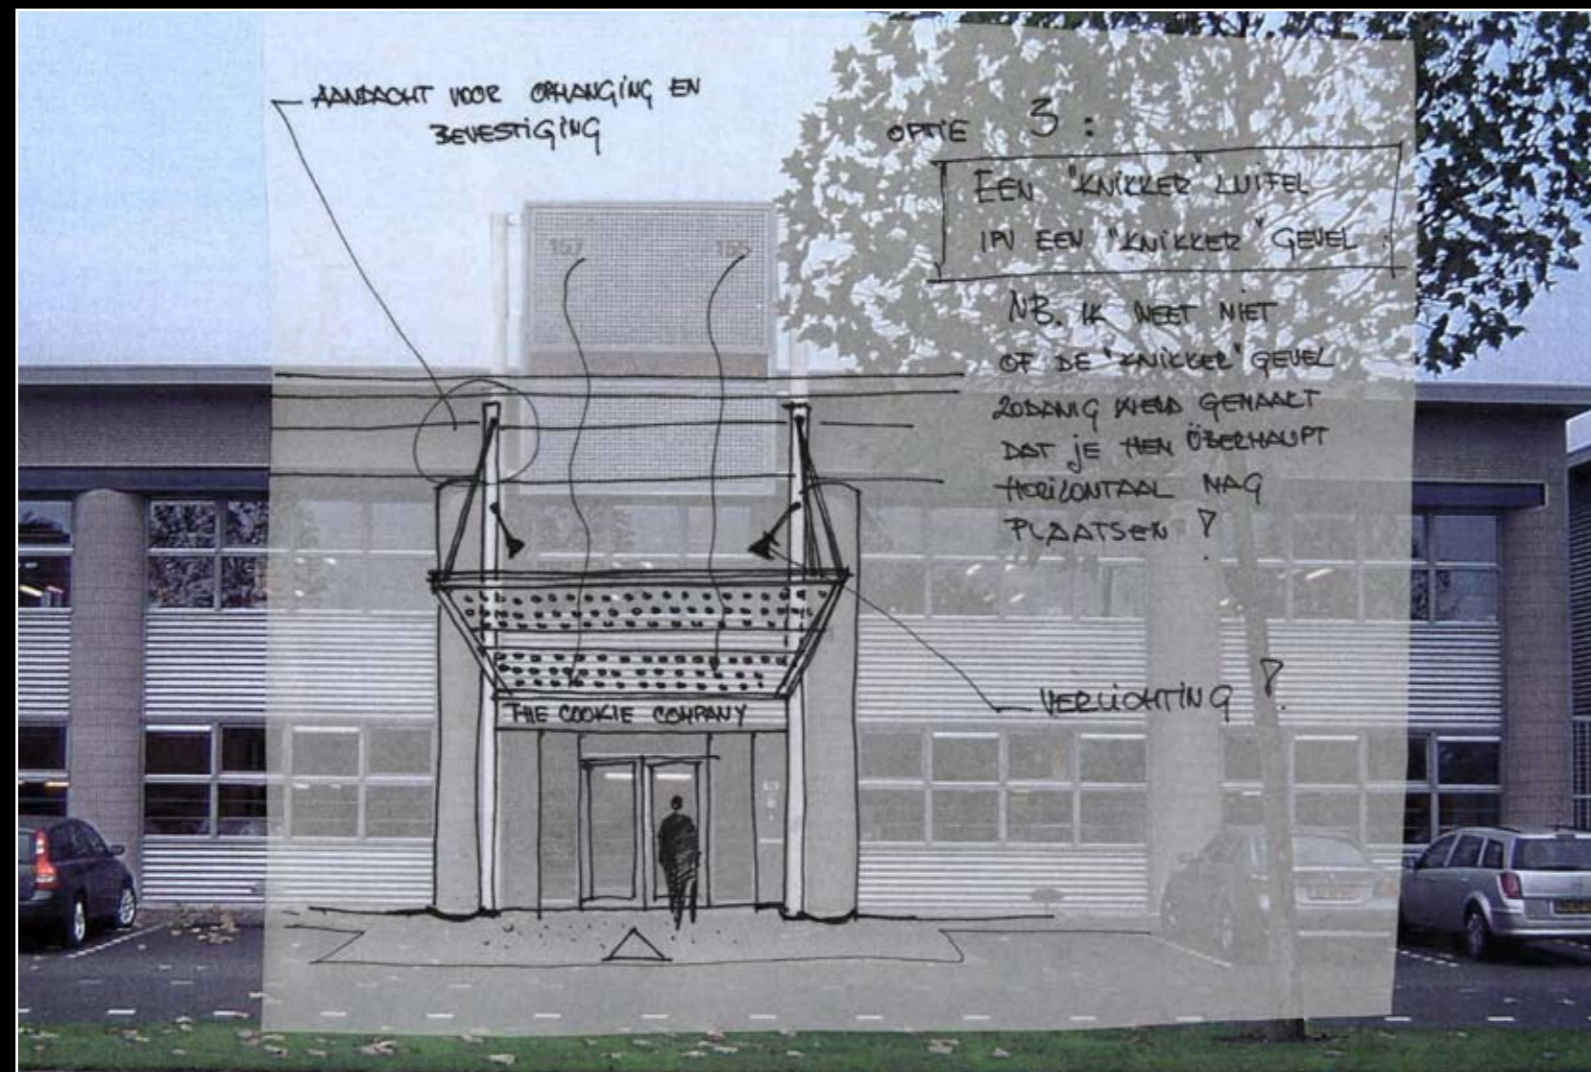 AANDACHT VOOR OPHANGING EN
BEVESTIGING
OPTIE 3 :
EEN "KNIKKER" LUIFEL
IPV EEN "KNIKKER" GEVEL .
NB. IK WEET NIET
OF DE "KNIKKER" GEVEL
ZODANIG WERD GEMAAKT
DAT JE HEM ÜBERHAUPT
HORIZONTAAL MAG
PLAATSEN ?
157
155
VERLICHTING ?
THE COOKIE COMPANY